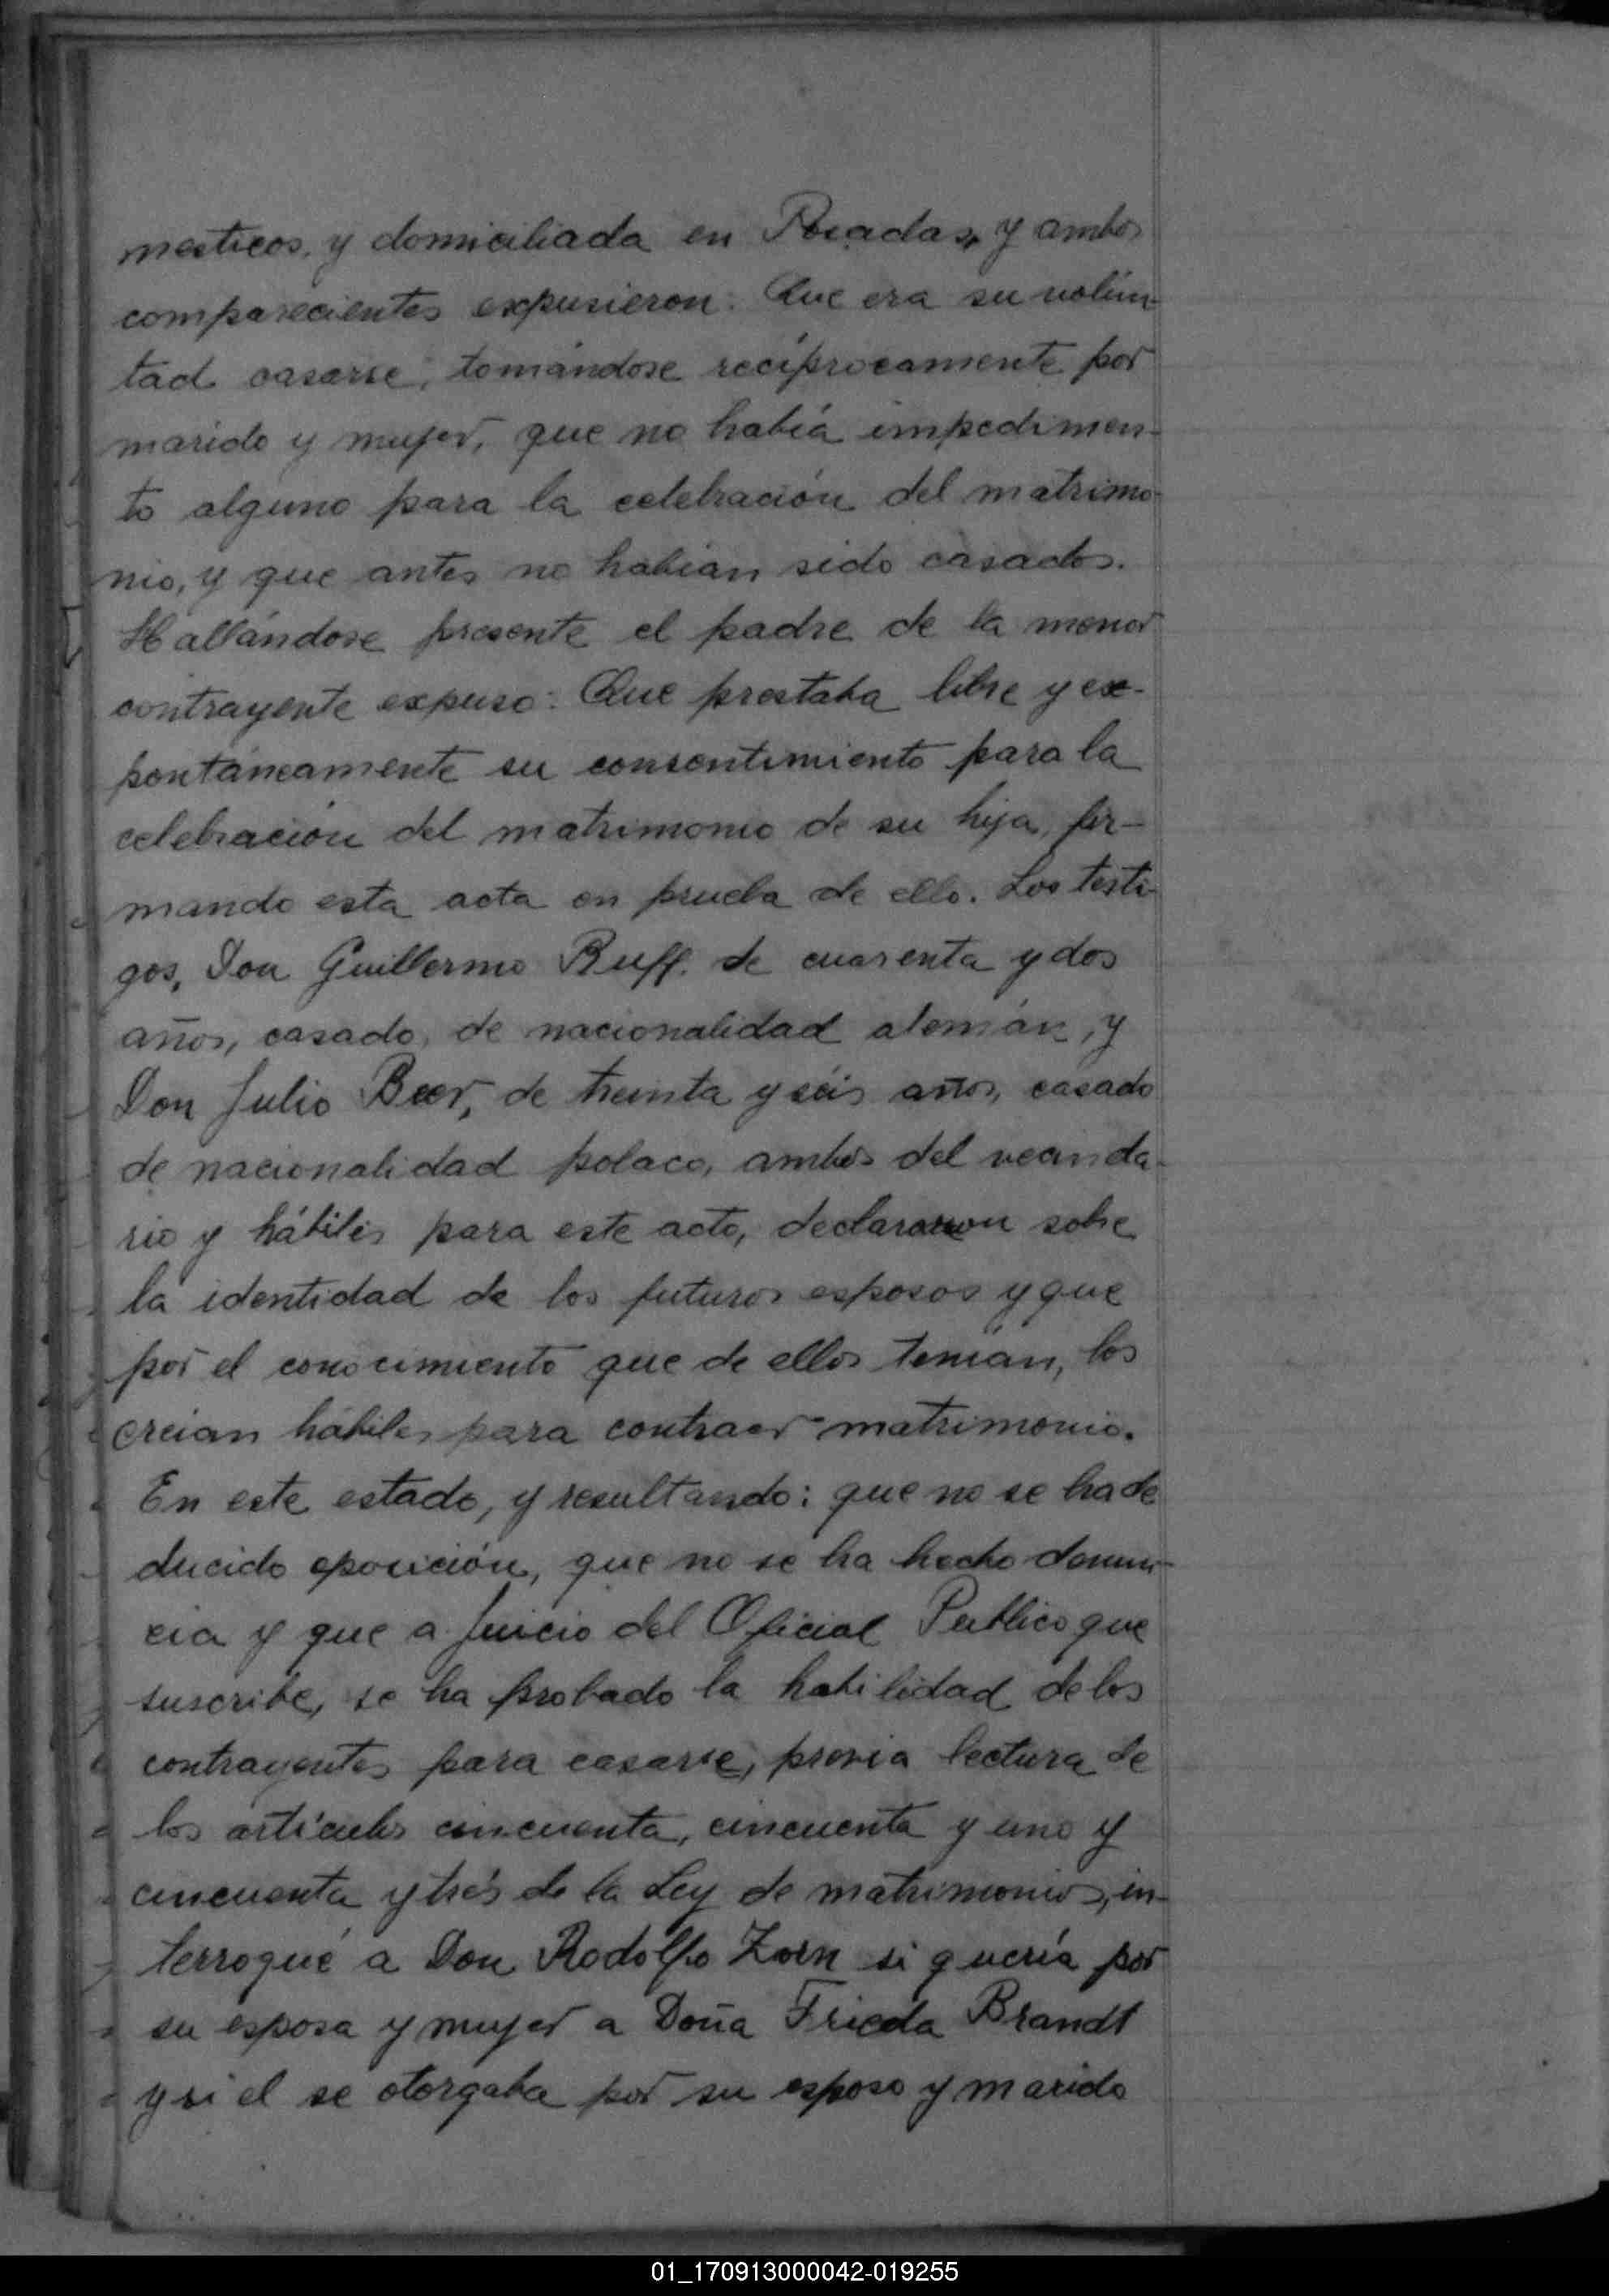 mesticos, y domiciliada en Posadas, y ambos
comparecientes expusieron: Que era su volun-
tad casarse, tomándose recíprocamente por
marido y mujer, que no había impedimen-
to alguno para la celebración del matrimo-
nio, y que antes no habían sido casados.
Hallándose presente el padre de la menor
contrayente expuso: Que prestaba libre y es-
pontáneamente su consentimiento para la
celebración del matrimonio de su hija, fir-
mando esta acta en prueba de ello. Los testi-
gos, Don Guillermo Ruff. de cuarenta y dos
años, casado, de nacionalidad alemán, y
Don Julio Beer, de treinta y séis años, casado
de nacionalidad polaco, ambos del vecinda-
rio y hábiles para este acto, declararon sobre
la identidad de los futuros esposos y que
por el conocimiento que de ellos tenían, los
creían hábiles para contraer matrimonio.
En este estado, y resultando: que no se ha de
ducido oposición, que no se ha hecho denun-
cia y que a Juicio del Oficial Publico que
suscribe, se ha probado la habilidad de los
contrayentes para casarse, previa lectura de
los artículos cincuenta, cincuenta y uno y
cincuenta y trés de la Ley de matrimonios, in-
terrogué a Don Rodolfo Zorn si quería por
su esposa y mujer a Doña Frieda Brandt
y si el se otorgaba por su esposo y marido
01_170913000042-019255